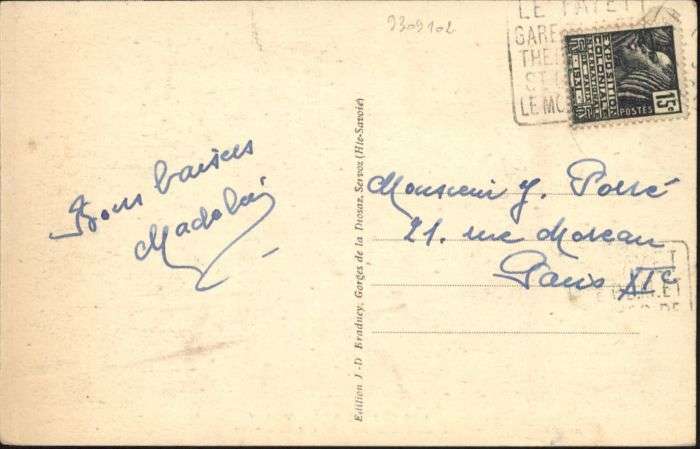 9309102
LE FAYET
GARE
THE
ST
LE MO
EXPOSITION
COLONIALE
INTERNATIONALE
PARIS 1931
POSTES
15c
Bons baisers
Madeleine
Edition J.-D Braducy, Gorges de la Diosaz, Servoz (Hte-Savoie)
Monsieur J. Porré
21. rue Moreau
Paris XIe